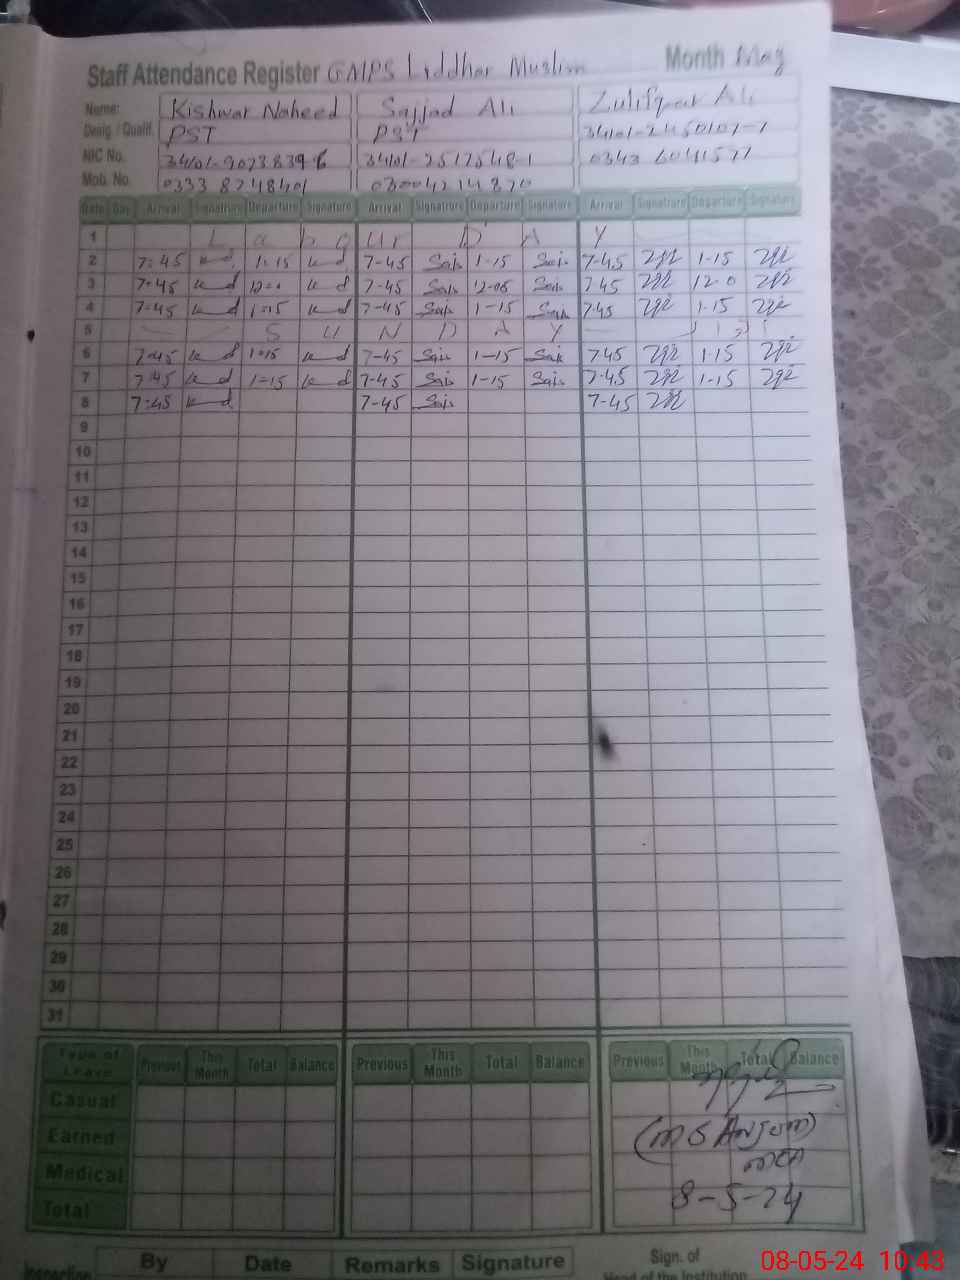 Staff Attendance Register GMPS Liddhar Muslim Month May
Name: Kishwar Naheed Sajjad Ali Zulifqar Ali
Desig. / Qualif. PST PST 34101-2450107-7
NIC No. 34101-9073839-6 34101-2512548-1 0343 6041577
Mob. No. 0333 8248401 03004214870
Date Day Arrival Signature Departure Signature Arrival Signatrure Departure Signature Arrival Signatrure Departure Signature
1 L a b o u r D A Y
2 7:45 1:15 7-45 Saj 1-15 Saj 7-45 1-15
3 7:45 12:0 7-45 Saj 12-00 Saj 7-45 12-0
4 7:45 1:15 7-45 Saj 1-15 Saj 7-45 1-15
5 S U N D A Y
6 7:45 1:15 7-45 Saj 1-15 Saj 7-45 1-15
7 7:45 1-15 7-45 Saj 1-15 Saj 7-45 1-15
8 7:45 7-45 Saj 7-45
9
10
11
12
13
14
15
16
17
18
19
20
21
22
23
24
25
26
27
28
29
30
31
Type of Leave Previous This Month Total Balance Previous This Month Total Balance Previous This Month Total Balance
Casual
Earned
Medical (M S Anjum)
MEA
Total 8-5-24
Inspection By Date Remarks Signature Sign. of
Head of the Institution
08-05-24 10:43